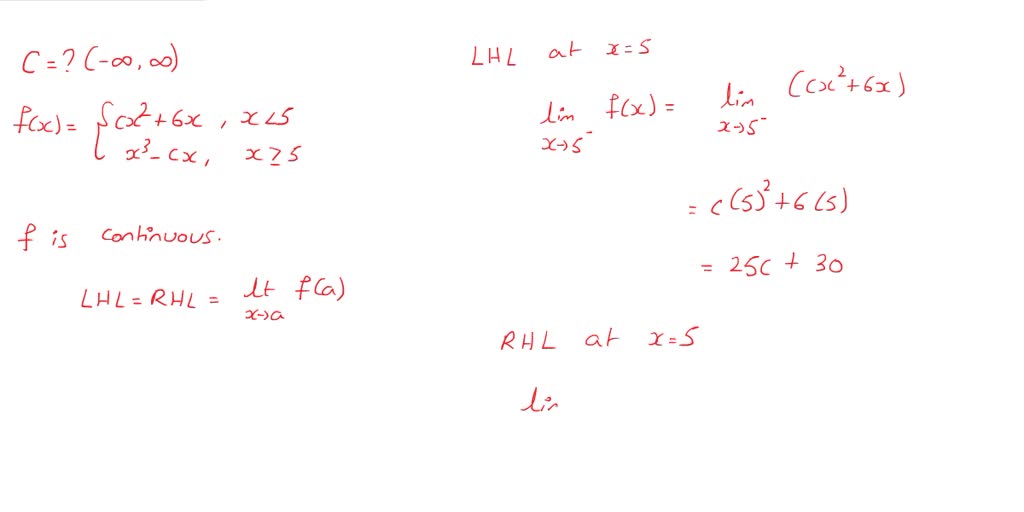 C = ? (-∞, ∞)
f(x) = { cx² + 6x , x < 5
x³ - cx , x ≥ 5
f is continuous.
LHL = RHL = lt f(a)
x→a
LHL at x = 5
lim f(x) = lim (cx² + 6x)
x→5⁻ x→5⁻
= c(5)² + 6(5)
= 25c + 30
RHL at x = 5
lim